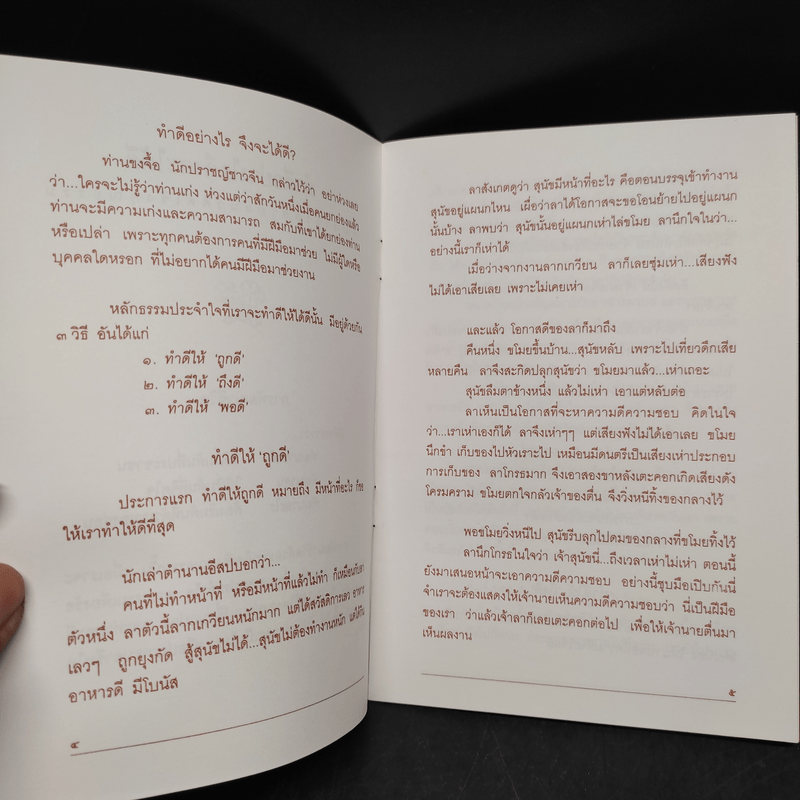 ทำดีอย่างไร จึงจะได้ดี?
ท่านขงจื้อ นักปราชญ์ชาวจีน กล่าวไว้ว่า อย่าห่วงเลย
ว่า...ใครจะไม่รู้ว่าท่านเก่ง ห่วงแต่ว่าสักวันหนึ่งเมื่อคนยกย่องแล้ว
ท่านจะมีความเก่งและความสามารถ สมกับที่เขาได้ยกย่องท่าน
หรือเปล่า เพราะทุกคนต้องการคนที่มีฝีมือมาช่วย ไม่มีผู้ใดหรือ
บุคคลใดหรอก ที่ไม่อยากได้คนมีฝีมือมาช่วยงาน
หลักธรรมประจำใจที่เราจะทำดีให้ได้ดีนั้น มีอยู่ด้วยกัน
๓ วิธี อันได้แก่
๑. ทำดีให้ 'ถูกดี'
๒. ทำดีให้ 'ถึงดี'
๓. ทำดีให้ 'พอดี'
ทำดีให้ 'ถูกดี'
ประการแรก ทำดีให้ถูกดี หมายถึง มีหน้าที่อะไร ก็ขอ
ให้เราทำให้ดีที่สุด
นักเล่าตำนานอีสปบอกว่า...
คนที่ไม่ทำหน้าที่ หรือมีหน้าที่แล้วไม่ทำ ก็เหมือนกับลา
ตัวหนึ่ง ลาตัวนี้ลากเกวียนหนักมาก แต่ได้สวัสดิการเลว อาหาร
เลวๆ ถูกยุงกัด สู้สุนัขไม่ได้...สุนัขไม่ต้องทำงานหนัก แต่ได้กิน
อาหารดี มีโบนัส
๔
ลาสังเกตดูว่า สุนัขมีหน้าที่อะไร คือตอนบรรจุเข้าทำงาน
สุนัขอยู่แผนกไหน เผื่อว่าลาได้โอกาสจะขอโอนย้ายไปอยู่แผนก
นั้นบ้าง ลาพบว่า สุนัขนั้นอยู่แผนกเห่าไล่ขโมย ลานึกในใจว่า...
อย่างนี้เราก็เห่าได้
เมื่อว่างจากงานลากเกวียน ลาก็เลยซุ่มเห่า...เสียงฟัง
ไม่ได้เอาเสียเลย เพราะไม่เคยเห่า
และแล้ว โอกาสดีของลาก็มาถึง
คืนหนึ่ง ขโมยขึ้นบ้าน...สุนัขหลับ เพราะไปเที่ยวดึกเสีย
หลายคืน ลาจึงสะกิดปลุกสุนัขว่า ขโมยมาแล้ว...เห่าเถอะ
สุนัขลืมตาข้างหนึ่ง แล้วไม่เห่า เอาแต่หลับต่อ
ลาเห็นเป็นโอกาสที่จะหาความดีความชอบ คิดในใจ
ว่า...เราเห่าเองก็ได้ ลาจึงเห่าๆๆ แต่เสียงฟังไม่ได้เอาเลย ขโมย
นึกขำ เก็บของไปหัวเราะไป เหมือนมีดนตรีเป็นเสียงเห่าประกอบ
การเก็บของ ลาโกรธมาก จึงเอาสองขาหลังเตะคอกเกิดเสียงดัง
โครมคราม ขโมยตกใจกลัวเจ้าของตื่น จึงวิ่งหนีทิ้งของกลางไว้
พอขโมยวิ่งหนีไป สุนัขรีบลุกไปดมของกลางที่ขโมยทิ้งไว้
ลานึกโกรธในใจว่า เจ้าสุนัขนี่...ถึงเวลาเห่าไม่เห่า ตอนนี้
ยังมาเสนอหน้าจะเอาความดีความชอบ อย่างนี้ชุบมือเปิบกันนี่
จำเราจะต้องแสดงให้เจ้านายเห็นความดีความชอบว่า นี่เป็นฝีมือ
ของเรา ว่าแล้วเจ้าลาก็เลยเตะคอกต่อไป เพื่อให้เจ้านายตื่นมา
เห็นผลงาน
๕